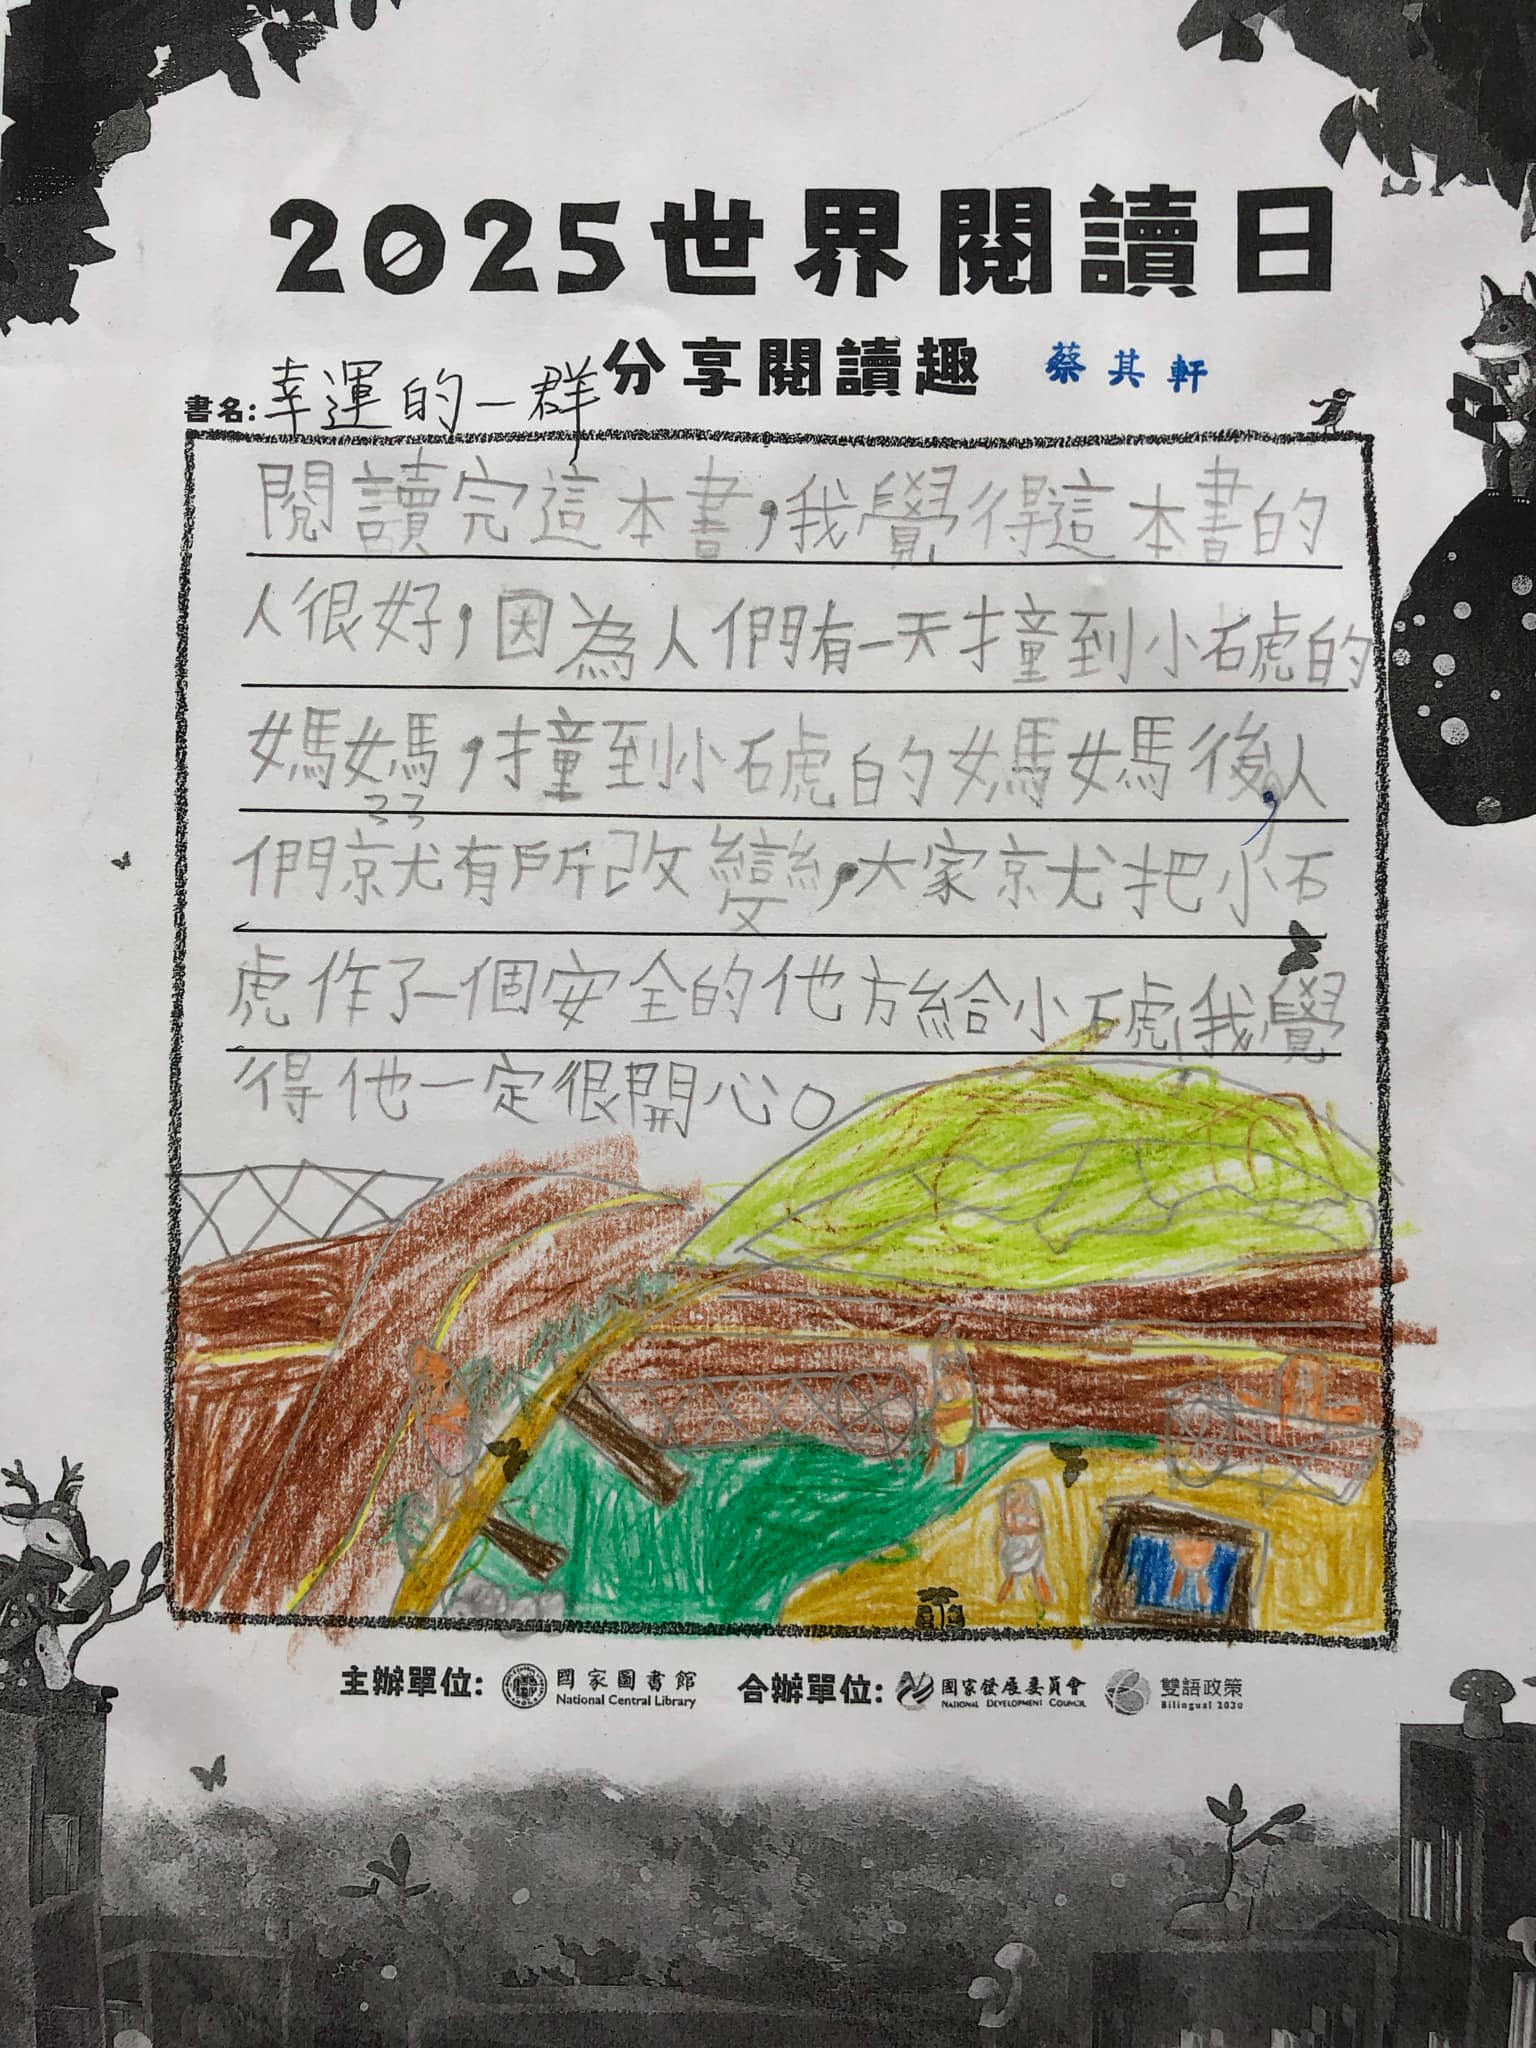 2025世界閱讀日
分享閱讀趣 蔡其軒
書名:幸運的一群
閱讀完這本書,我覺得這本書的
人很好,因為人們有一天撞到小石虎的
媽媽,撞到小石虎的媽媽後,人
們就有所改變,大家就把小石
虎作了一個安全的他方給小石虎,我覺
得他一定很開心。
主辦單位: 國家圖書館 National Central Library 合辦單位: 國家發展委員會 NATIONAL DEVELOPMENT COUNCIL 雙語政策 Bilingual 2030